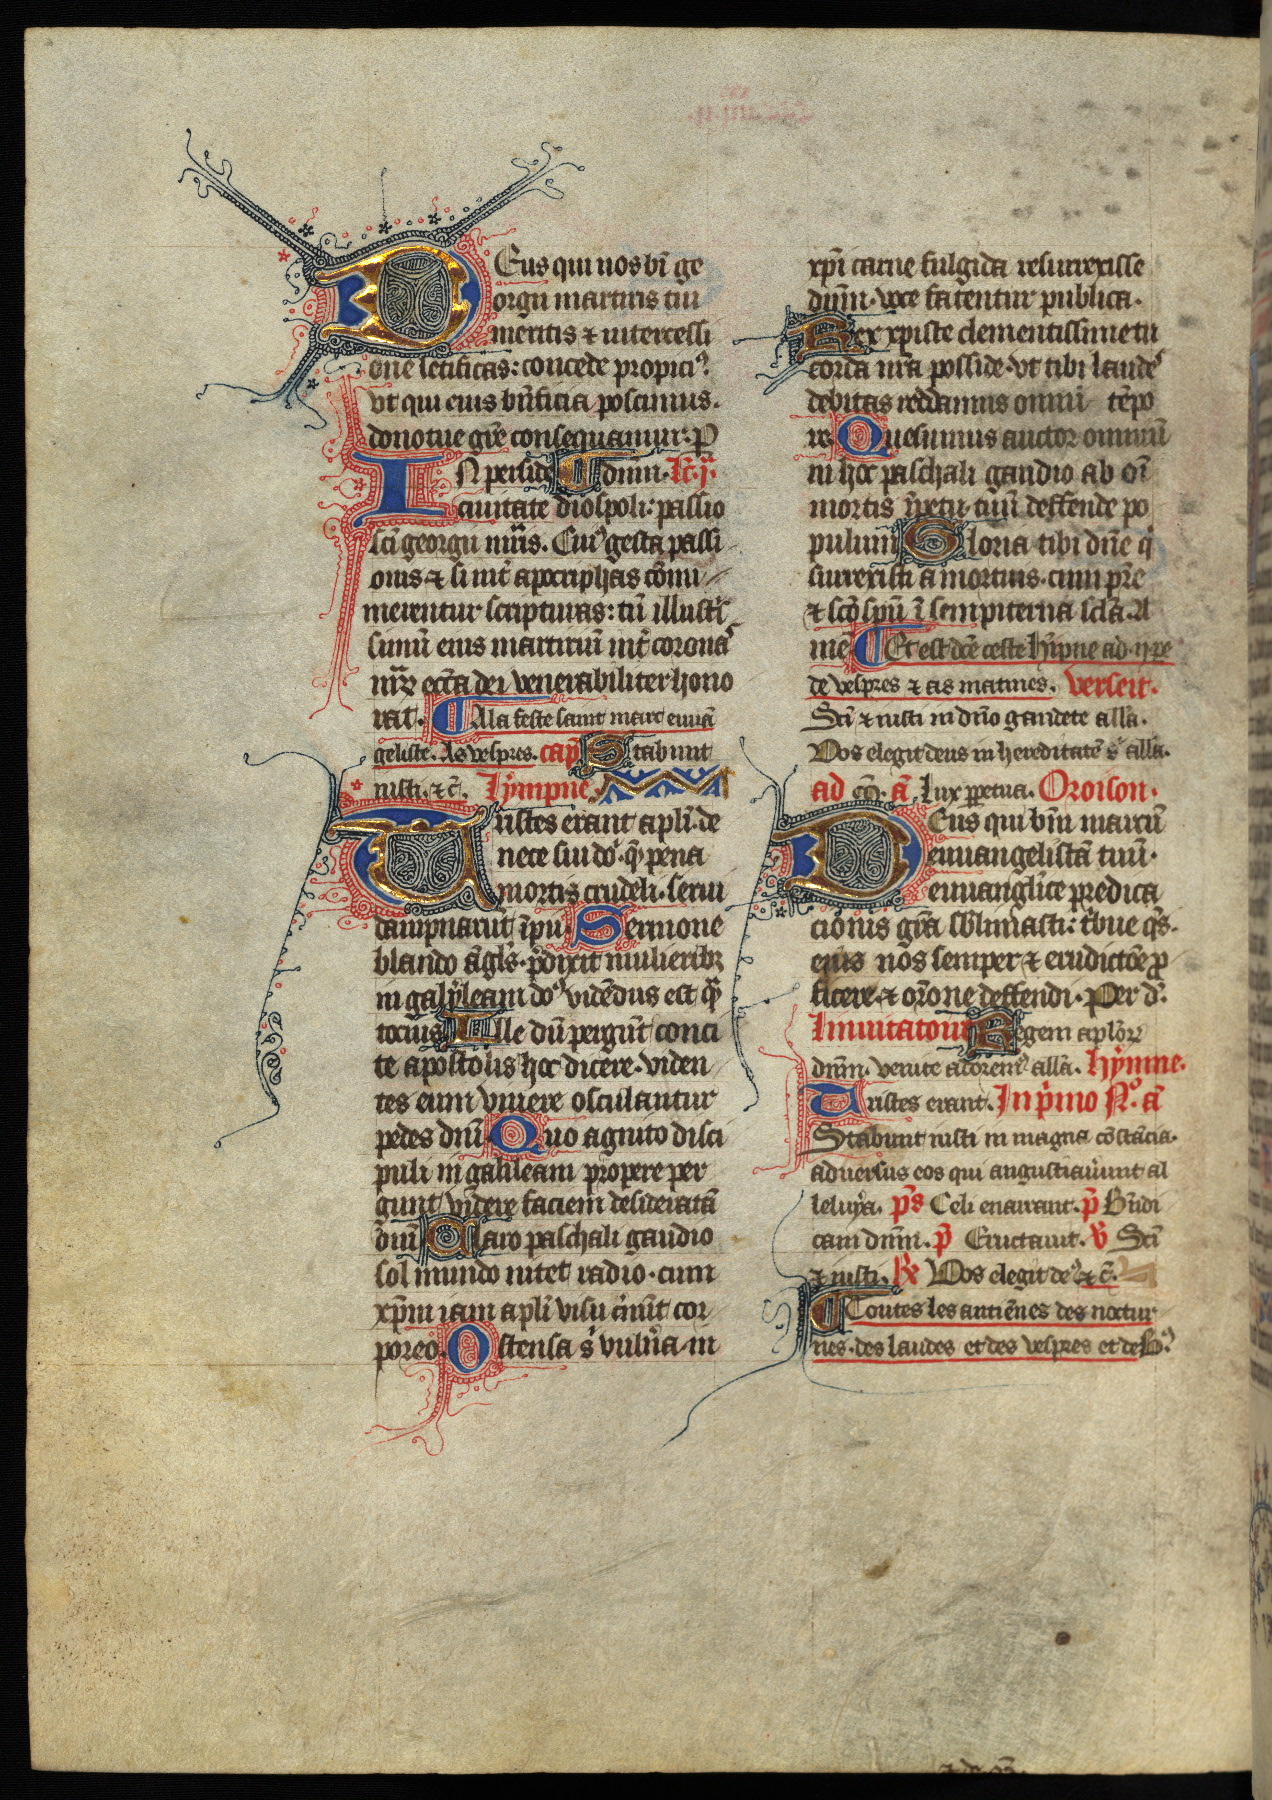 Deus qui nos bt̄i ge
orgii martiris tui
meritis ⁊ intercessi
one letificas: concede propiciꝰ
vt qui eius bn̄ficia poscimus.
dono tue gr̄e consequamur: P
IN perside ¶ domn̄. Lc̄. j.
ciuitate diospoli: passio
sci georgii mr̄is. Cuiꝰ gesta passi
onis ⁊ si int̄ apocriphas com̄i
merentur scripturas: tn̄ illustris
simū eius martiriū int̄ coronas
mr̄m eccl̄a dei venerabiliter hono
rat. ¶ A la feste saint marc euuā
geliste. As vespres. cap̄ Stabunt
iusti. ⁊c̄. Hympne.
Tristes erant apl̄i. de
nece sui dō. q̄ pena
mortis crudeli. serui
dampnarūt īpii. Sermone
blando āgl̄s. p̄dixit mulieribꝫ
in galyleam doꝰ vidēdus est q̄
tocius Ille dū pergūt conci
te apostolis hoc dicere. viden
tes eum viuere osculantur
pedes dn̄i. Quo agnito disci
puli in galileam propere per
gunt videre faciem desideratā
dn̄i Claro paschali gaudio
sol mundo nitet radio. cum
xp̄m iam apl̄i visu c̄nūt cor
poreo. Ostensa s̄ vuln̄a in
xp̄i carne fulgida resurrexisse
dn̄m. voce fatentur publica.
Rex xpiste clementissime tu
corda nr̄a posside. vt tibi laudes
debitas reddamus omni tēpo
re. Quesumus auctor omniū
in hoc paschali gaudio ab oī
mortis īpetu. tuū deffende po
pulum Gloria tibi dn̄e q̄
surrexisti a mortuis. cum pr̄e
⁊ sc̄o spū ī sempiterna scl̄a. A
mē ¶ Et est dc̄e ceste hȳpne ad. ij. pe
de vespres ⁊ as matines. verseit.
Sc̄i ⁊ iusti in dn̄o gaudete all̄a.
Vos elegit deus in hereditatē s̄ all̄a.
ad cō. a̅. Lux ꝑpetua. Oroison.
Deus qui bt̄m marcū
euuangelistā tuū.
euuangl̄ice predica
cionis gr̄a sblimasti: t̄bue q̄s.
eius nos semper ⁊ erudictōe ꝓ
ficere. ⁊ or̄one deffendi. Per d̄.
Inuitatoire Regem aplōꝝ
dn̄m. venite adoremꝰ all̄a. hȳmne.
Tristes erant. In p̄mo N̊. a̅
Stabunt iusti in magna cōstācia.
aduersus eos qui angustiaūunt al
leluya. p̄s Celi enarrant. p̄ Bn̄di
cam dn̄m. p̄ Eructauit. V̄ Sc̄i
⁊ iusti. R̄x Vos elegit deꝰ ⁊c̄.
¶ Toutes les antiēnes des noctur
nes. des laudes et des vespres et de Bꝰ